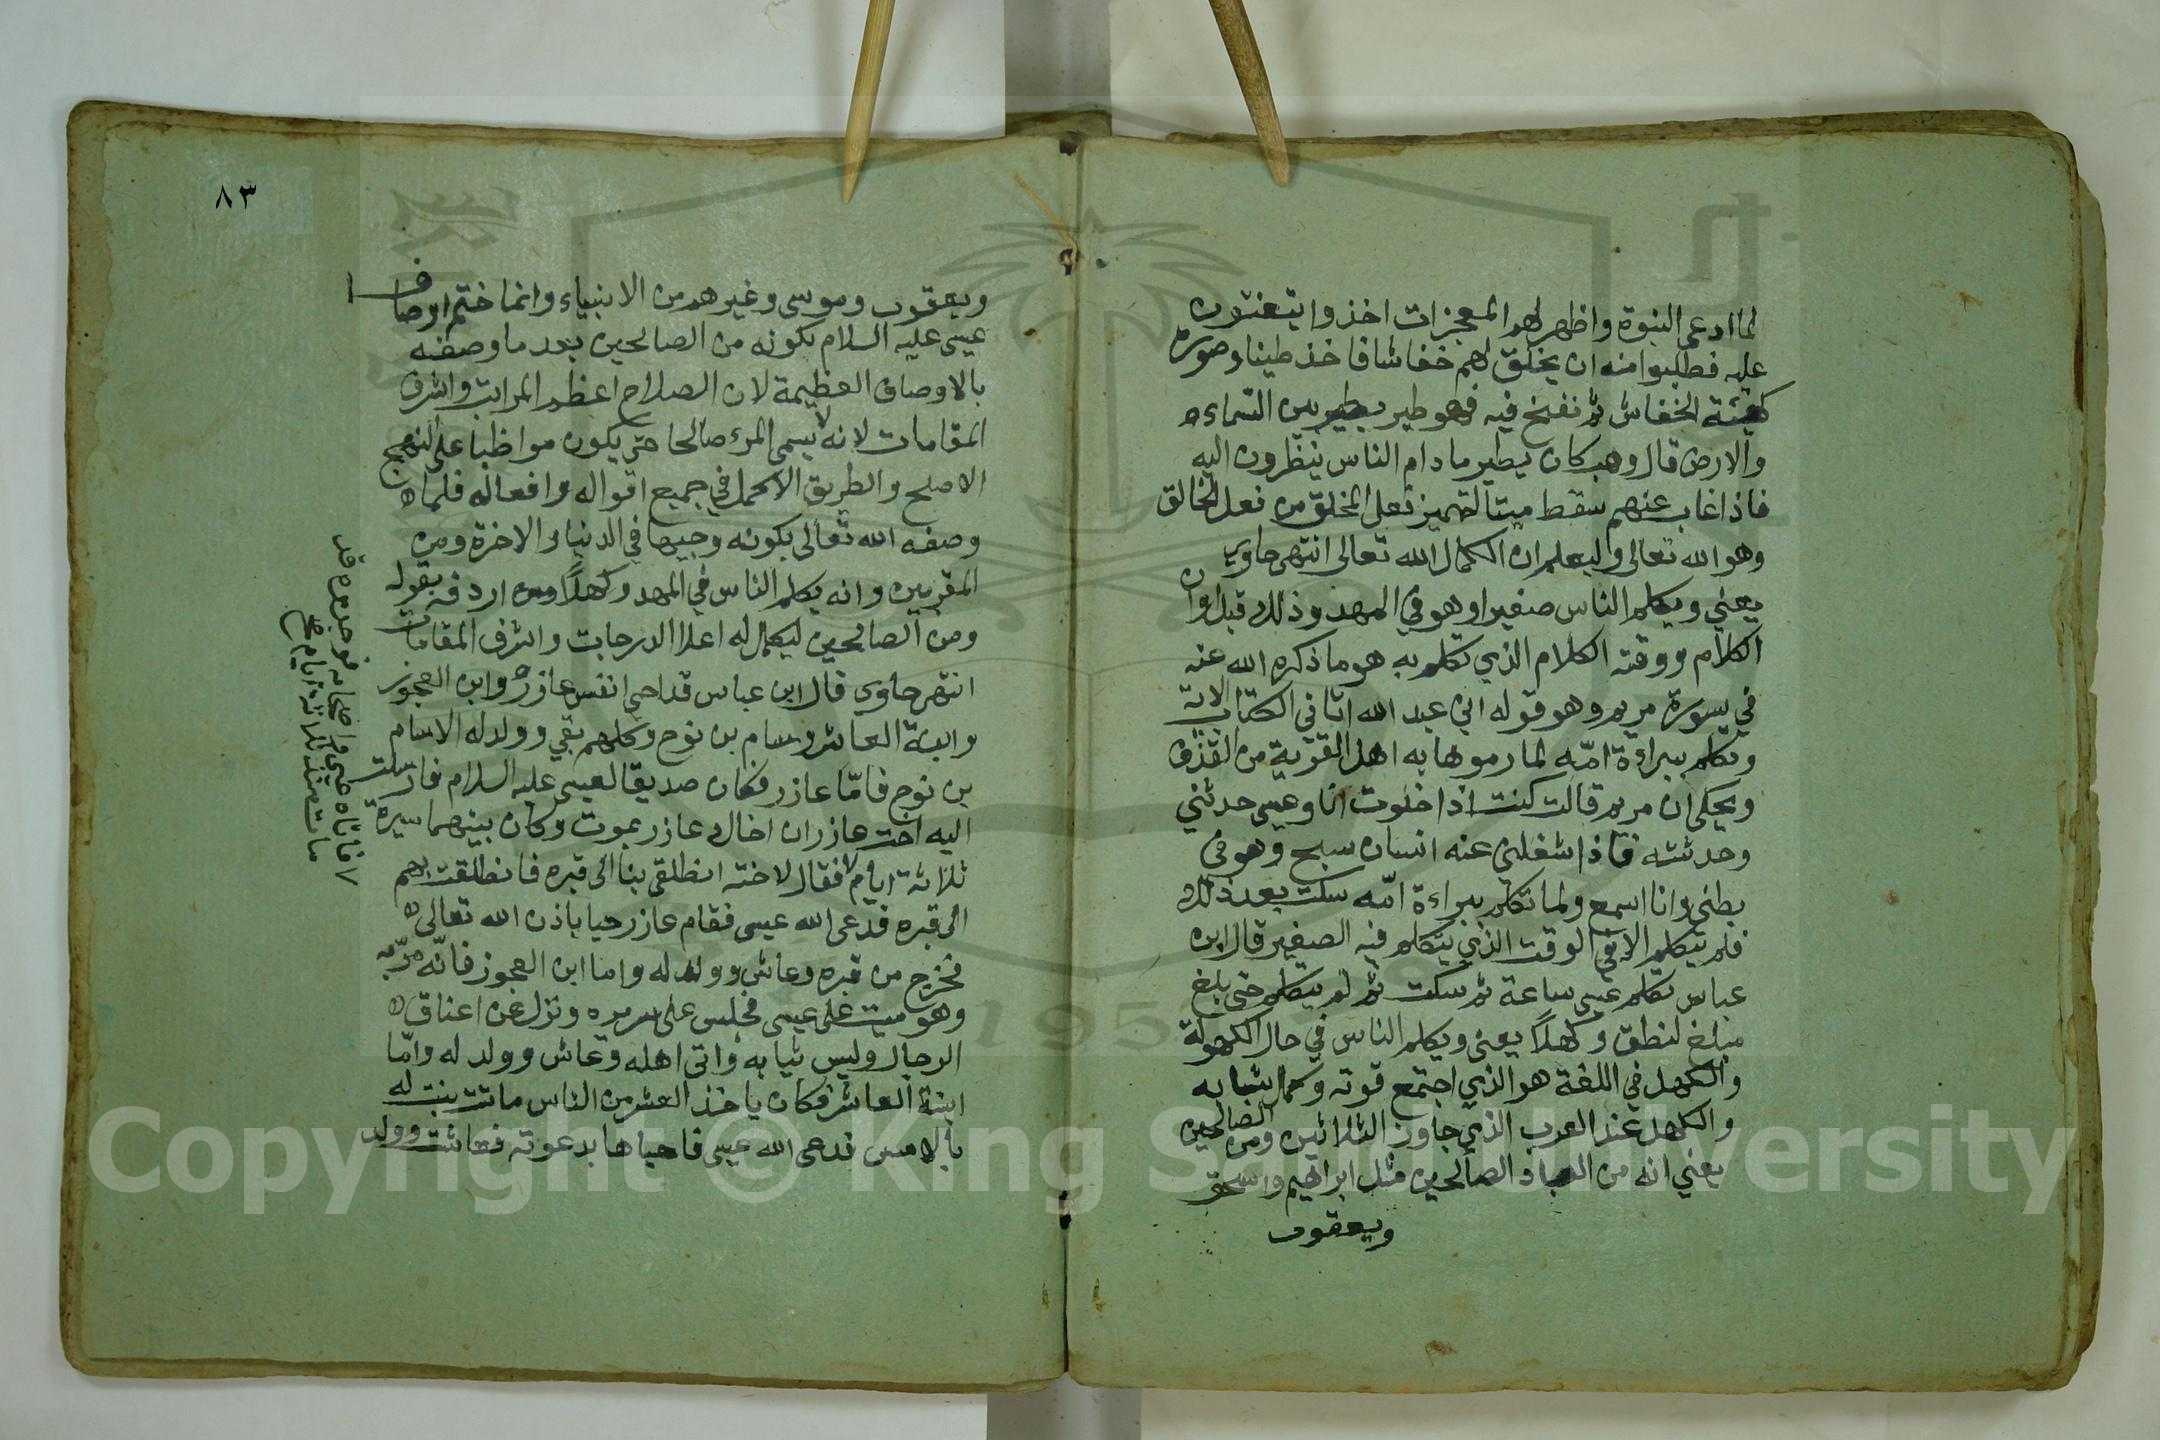 لما ادعى النبوة واظهر لهم المعجزات اخذوا يتعنتون
عليه فطلبوا منه ان يخلق لهم خفاشا فاخذ طينا وصوره
كهيئة الخفاش ثم نفخ فيه فهو طير يطير بين السماء
والارض قال وهب كان يطير ما دام الناس ينظرون اليه
فاذا غاب عنهم سقط ميتا لتميز فعل المخلق من فعل الخالق
وهو الله تعالى وليعلم ان الكمال لله تعالى انتهى حاوي
يعني ويكلم الناس صغيرا وهو في المهد وذلك قبل اوان
الكلام ووقته الكلام الذي تكلم به هو ما ذكره الله عنه
في سورة مريم وهو قوله اني عبد الله اتاني الكتاب الاية
وتكلم ببراءة امّه لما رموها به اهل القرية من القذف
ويحكى ان مريم قالت كنت اذا خلوت انا وعيسى حدثني
وحدثته فاذا شغلني عنه انسان سبح وهو في
بطني وانا اسمع ولما تكلم ببراءة امّه سكت بعد ذلك
فلم يتكلم الا في الوقت الذي يتكلم فيه الصغير قال ابن
عباس تكلم عيسى ساعة ثم سكت ثم لم يتكلم حتى بلغ
مبلغ لنطق وكهلاً يعني ويكلم الناس في حال الكهولة
والكهل في اللغة هو الذي اجتمع قوته وكمل شبابه
والكهل عند العرب الذي جاوز الثلاثين ومن الصالحين
يعني انه من العباد الصالحين مثل ابراهيم واسحق
ويعقوب
٨٣
ويعقوب وموسى وغيرهم من الانبياء وانما ختم اوصاف
عيسى عليه السلام بكونه من الصالحين بعد ما وصفه
بالاوصاف العظيمة لان الصلاح اعظم المراتب واشرف
المقامات لانه لا يسمى المرء صالحا حتى يكون مواظبا على النهج
الاصلح والطريق الاكمل في جميع اقواله وافعاله فلما
وصفه الله تعالى بكونه وجيها في الدنيا والاخرة ومن
المقربين وانه يكلم الناس في المهد وكهلاً ومن اردفه بقوله
ومن الصالحين ليكمل له اعلا الدرجات واشرف المقامات
انتهى حاوي قال ابن عباس قد احي انفس عازر وابن العجوز
وابنة العاشر وسام بن نوح وكلهم بقي وولد له الا سام
بن نوح فامّا عازر فكان صديقا لعيسى عليه السلام فارسلت
اليه اخت عازر ان اخاك عازر يموت وكان بينهما مسيرة
ثلاثة ايام فقال لاخته انطلقي بنا الى قبره فانطلقت بهم
الى قبره فدعى الله عيسى فقام عازر حيا باذن الله تعالى
فخرج من قبره وعاش وولد له واما ابن العجوز فانّه مرّ به
وهو ميت على عيسى فجلس على سريره ونزل عن اعناق
الرجال ولبس ثيابه واتى اهله وعاش وولد له وامّا
ابنة العاشر فكان ياخذ العشر من الناس ماتت بنت له
بالامس فدعى الله عيسى فاحياها بدعوته فعاشت وولد
فاتاه عيسى واصحابه فوجدوه قد
مات منذ ثلاثة ايام صح
Copyright © King Saud University